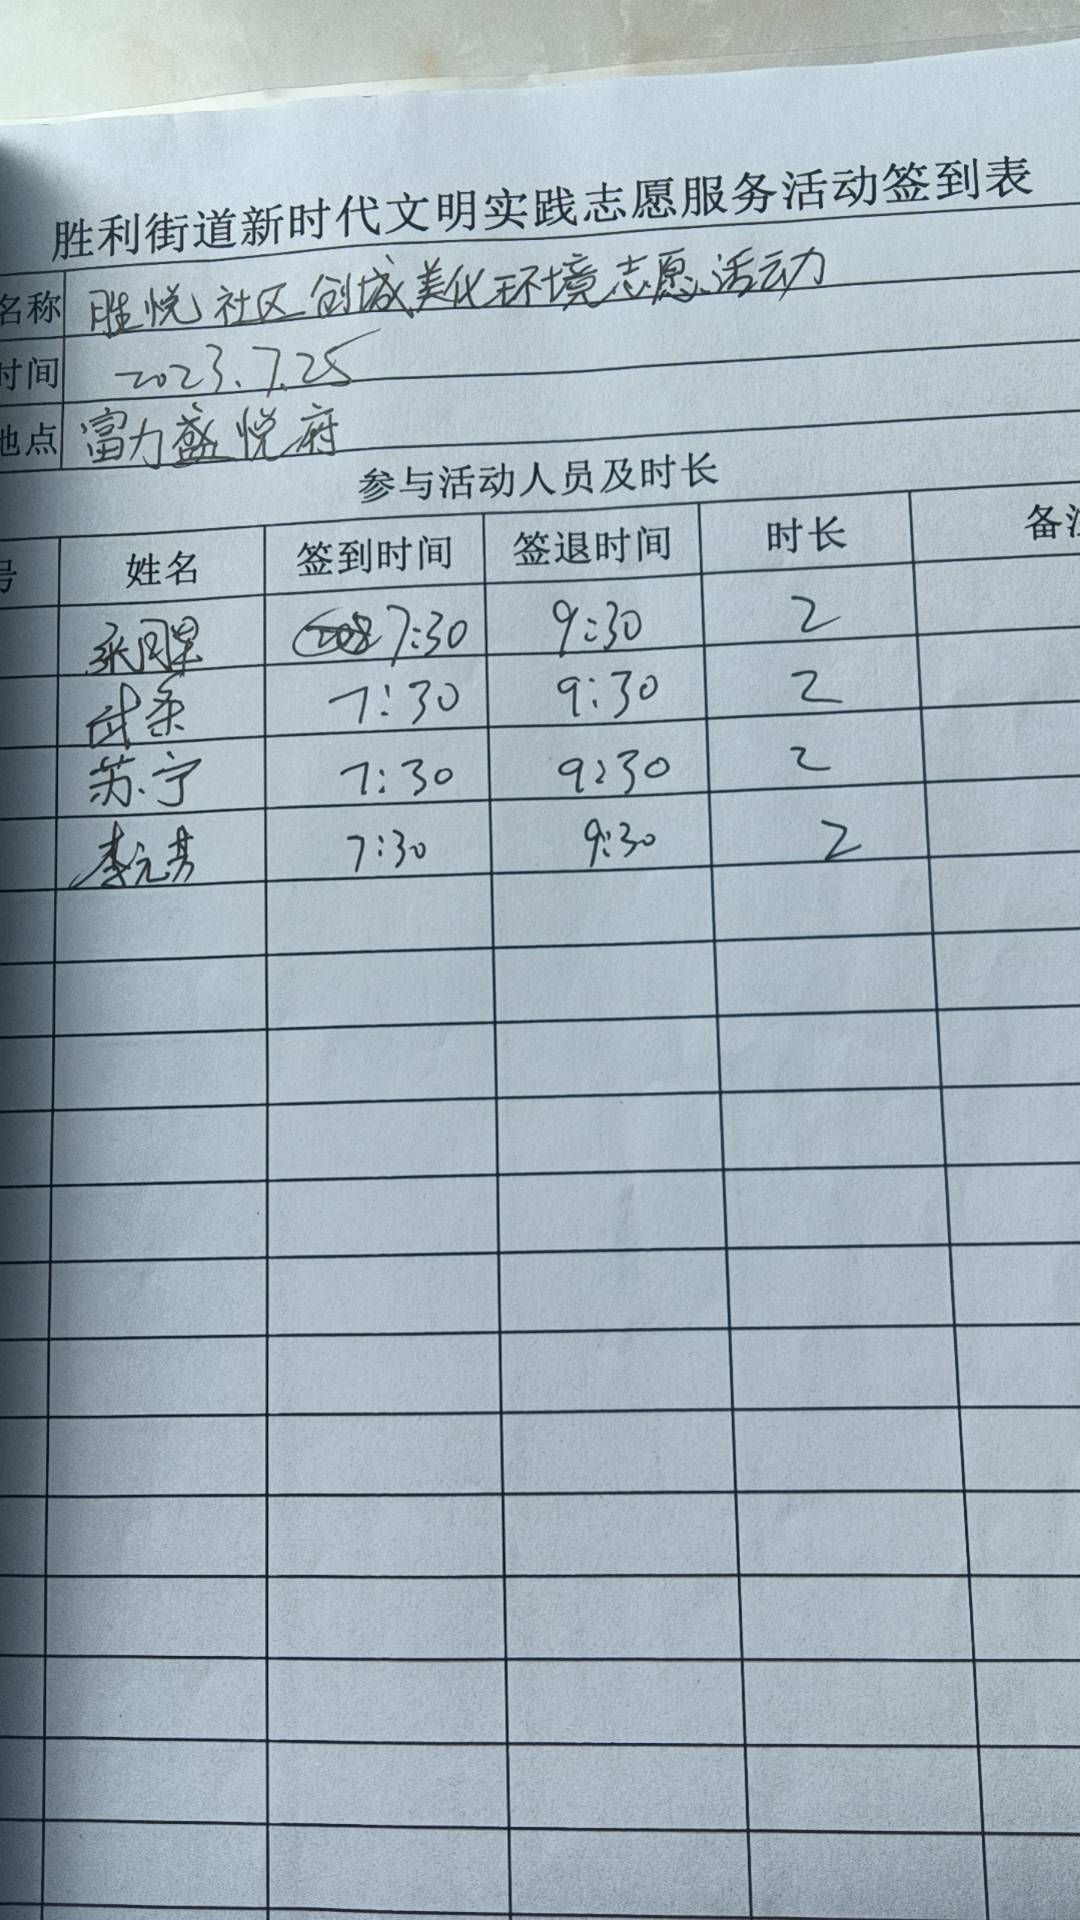 胜利街道新时代文明实践志愿服务活动签到表
名称 胜悦社区创城美化环境志愿活动
时间 2023.7.25
地点 富力盛悦府
参与活动人员及时长
号 姓名 签到时间 签退时间 时长 备注
7:30 9:30 2
武 7:30 9:30 2
苏宁 7:30 9:30 2
李元芳 7:30 9:30 2